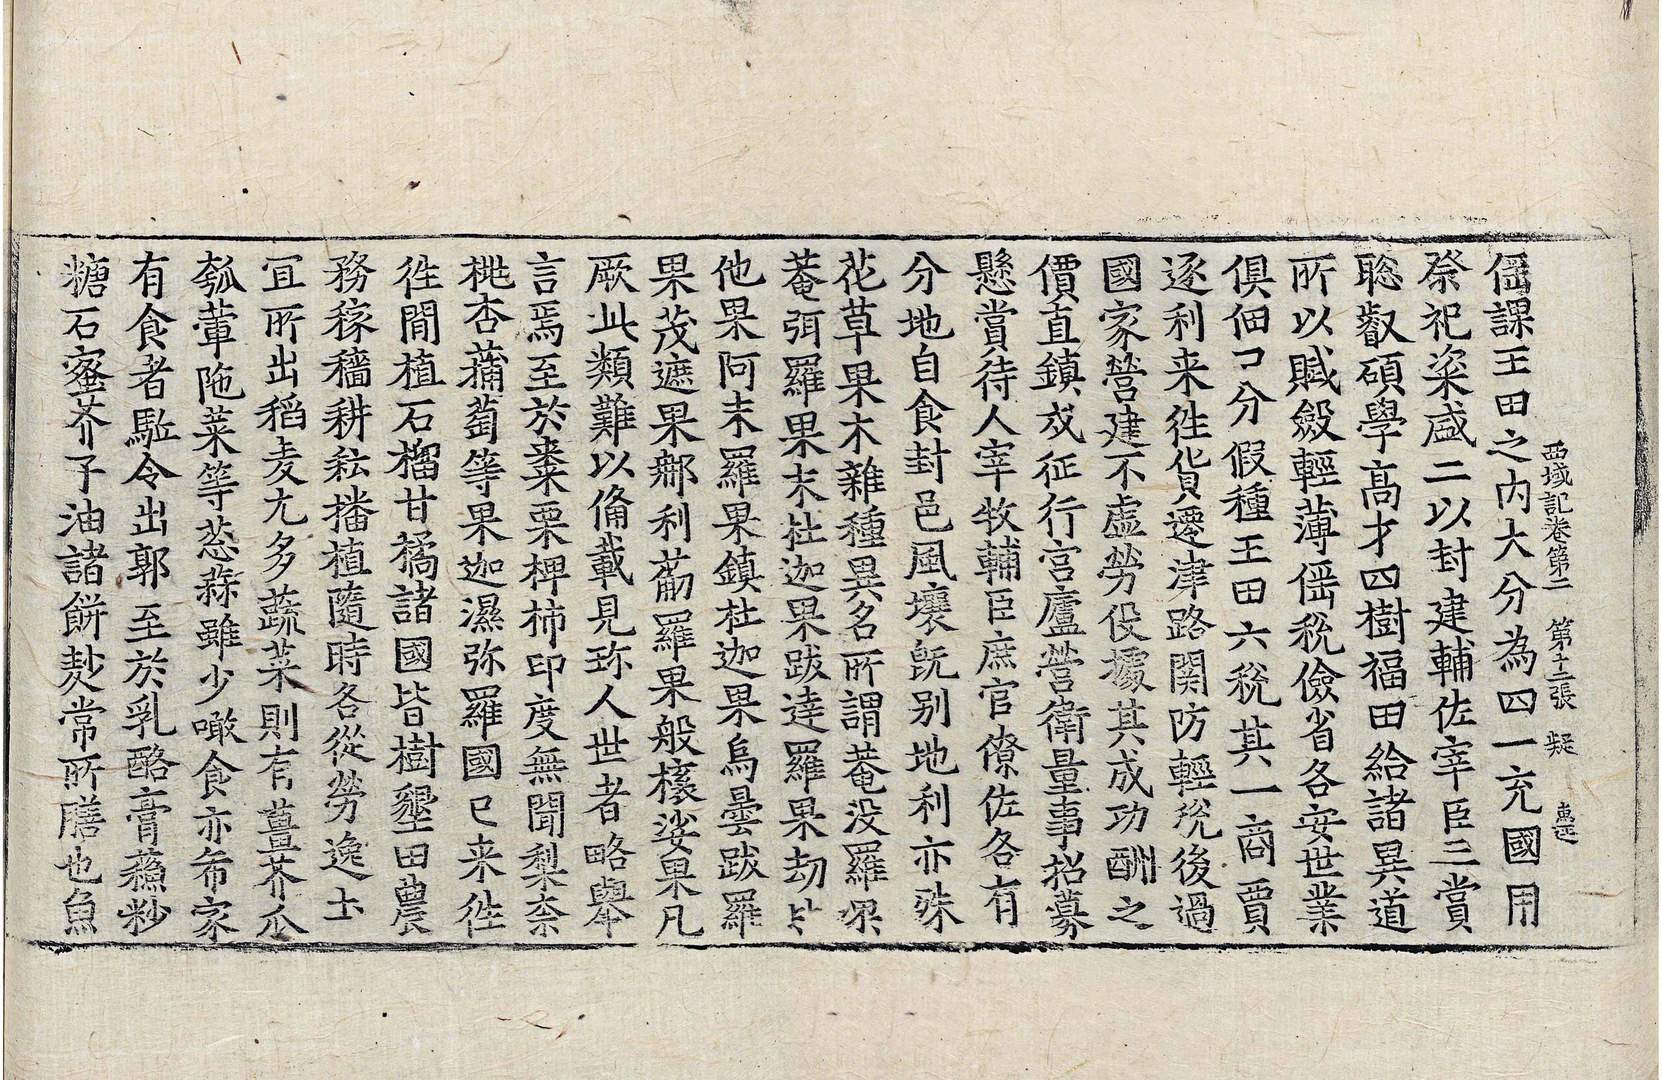 西域記卷第二 第十二張 疑
徭課王田之内大分為四一充國用
祭祀粢盛二以封建輔佐宰臣三賞
聡叡碩學高才四樹福田給諸異道
所以賦斂輕薄徭稅儉省各安世業
俱佃口分假種王田六稅其一商賈
逐利来徃貨遷津路關防輕稅後過
國家營建不虛勞役據其成功酬之
價直鎮戍征行宮廬營衛量事招募
懸賞待人宰牧輔臣庶官僚佐各有
分地自食封邑風壤旣别地利亦殊
花草果木雜種異名所謂菴没羅果
菴弭羅果末杜迦果跋達羅果劫比
他果阿末羅果鎮杜迦果烏曇跋羅
果茂遮果那利葪羅果般橠娑果凡
厥此類難以備載見珎人世者略舉
言焉至於棗栗椑柿印度無聞梨柰
桃杏蒲萄等果迦濕弥羅國已来徃
徃間植石榴甘橘諸國皆樹墾田農
務稼穡耕耘播植隨時各從勞逸土
冝所出稻麦尤多蔬菜則有薑芥瓜
瓠葷陁菜等葱蒜雖少噉食亦希家
有食者駈令出郭至於乳酪膏蘓粆
糖石蜜芥子油諸餅麨常所膳也魚